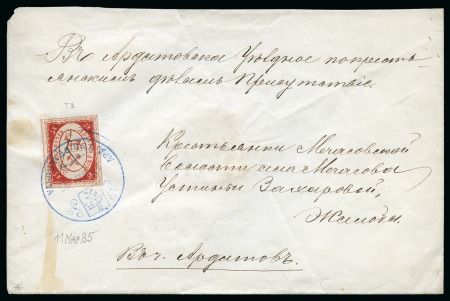 Въ Ардатовское Уѣздное по крестьянскимъ дѣламъ Присутствіе
Крестьянки Мечасовской
Волости села Мечасова
Устиньи Захаровой,
Жалоба.
11 Мар. 85
Въ г. Ардатовъ.